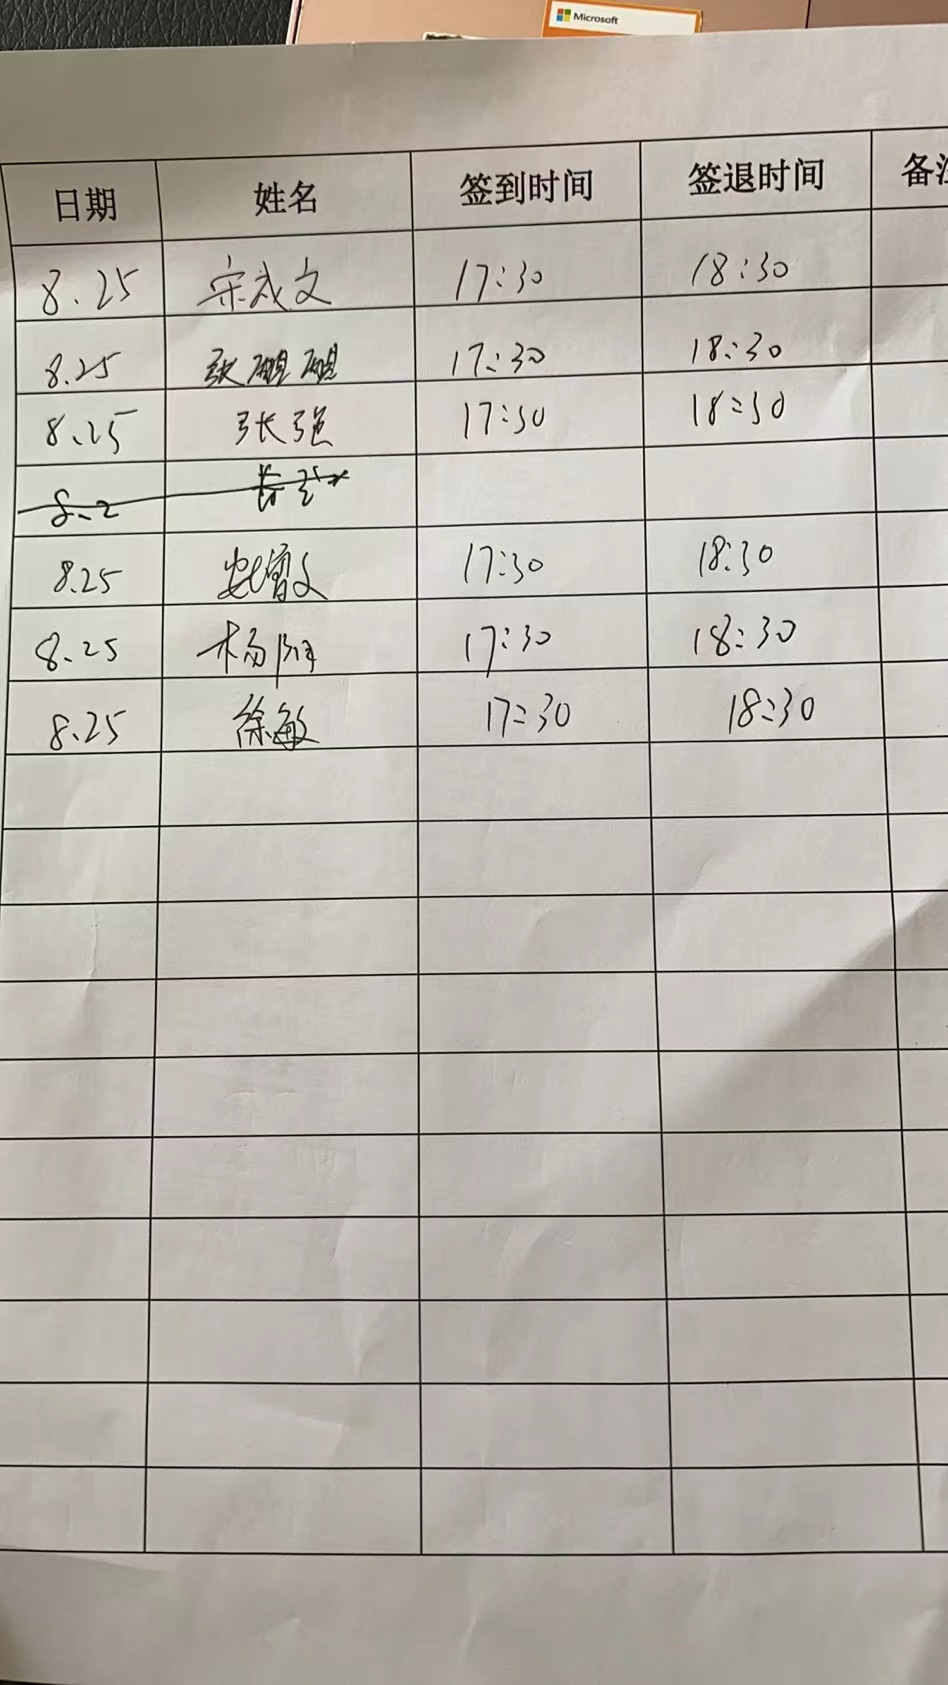 Microsoft
日期 姓名 签到时间 签退时间 备注
8.25 宋成文 17:30 18:30
8.25 张 17:30 18:30
8.25 张强 17:30 18:30
8.2
8.25 17:30 18:30
8.25 杨阳 17:30 18:30
8.25 徐敏 17:30 18:30